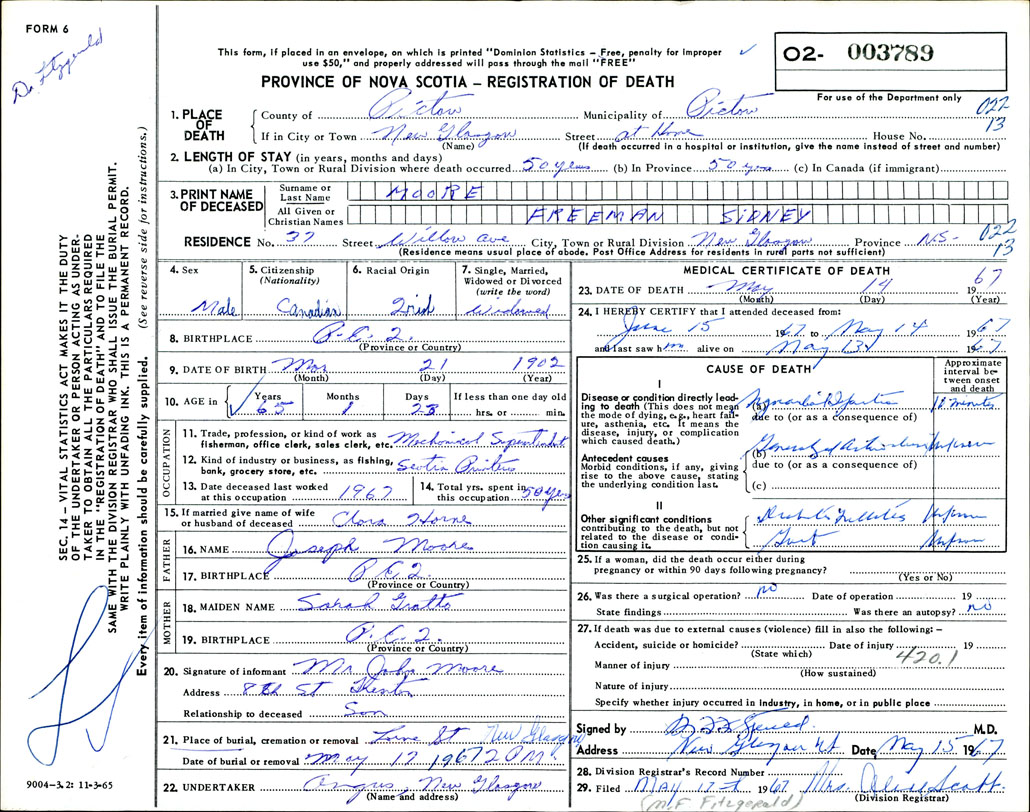 FORM 6
Dr. Fitzgerald
This form, if placed in an envelope, on which is printed "Dominion Statistics – Free, penalty for improper
use $50," and properly addressed will pass through the mail "FREE"
PROVINCE OF NOVA SCOTIA – REGISTRATION OF DEATH
O2- 003789
For use of the Department only
022
13
1. PLACE OF DEATH
County of Pictou Municipality of Pictou
If in City or Town New Glasgow Street at Home House No.
(Name) (If death occurred in a hospital or institution, give the name instead of street and number)
2. LENGTH OF STAY (in years, months and days)
(a) In City, Town or Rural Division where death occurred 50 years (b) In Province 50 yrs (c) In Canada (if immigrant)
3. PRINT NAME OF DECEASED
Surname or Last Name MOORE
All Given or Christian Names FREEMAN SIDNEY
RESIDENCE No. 37 Street Willow Ave City, Town or Rural Division New Glasgow Province N.S-
022
13
(Residence means usual place of abode. Post Office Address for residents in rural parts not sufficient)
4. Sex
Male
5. Citizenship
(Nationality)
Canadian
6. Racial Origin
Irish
7. Single, Married,
Widowed or Divorced
(write the word)
Widowed
8. BIRTHPLACE P.E.I.
(Province or Country)
9. DATE OF BIRTH Mar 21 1902
(Month) (Day) (Year)
10. AGE in
Years Months Days If less than one day old
65 1 23 hrs. or min.
OCCUPATION
11. Trade, profession, or kind of work as
fisherman, office clerk, sales clerk, etc. Mechanical Superintendent
12. Kind of industry or business, as fishing,
bank, grocery store, etc. Scotia Printers
13. Date deceased last worked
at this occupation 1967
14. Total yrs. spent in
this occupation 50 yrs
15. If married give name of wife
or husband of deceased Clara Horne
FATHER
16. NAME Joseph Moore
17. BIRTHPLACE P.E.I.
(Province or Country)
MOTHER
18. MAIDEN NAME Sarah Gratto
19. BIRTHPLACE P.E.I.
(Province or Country)
20. Signature of informant Mr John Moore
Address 8th St Trenton
Relationship to deceased Son
21. Place of burial, cremation or removal Lorne St New Glasgow
Date of burial or removal May 17 1967 2 P.M.
22. UNDERTAKER Angus, New Glasgow
(Name and address)
MEDICAL CERTIFICATE OF DEATH
23. DATE OF DEATH May 14 67
(Month) (Day) (Year)
24. I HEREBY CERTIFY that I attended deceased from:
June 15 1967 to May 14 1967
and last saw him alive on May 13 1967
CAUSE OF DEATH
Approximate interval between onset and death
I
Disease or condition directly leading to death (This does not mean the mode of dying, e.g., heart failure, asthenia, etc. It means the disease, injury, or complication which caused death.)
(a) Myocardial Infarction 10 minutes
due to (or as a consequence of)
Antecedent causes
Morbid conditions, if any, giving rise to the above cause, stating the underlying condition last.
(b) Generalized
due to (or as a consequence of)
(c)
II
Other significant conditions
contributing to the death, but not related to the disease or condition causing it.
Gout
25. If a woman, did the death occur either during
pregnancy or within 90 days following pregnancy?
(Yes or No)
26. Was there a surgical operation? no Date of operation 19
State findings Was there an autopsy? no
27. If death was due to external causes (violence) fill in also the following: –
Accident, suicide or homicide? Date of injury 19
(State which) 420.1
Manner of injury
(How sustained)
Nature of injury
Specify whether injury occurred in industry, in home, or in public place
Signed by M.D.
Address New Glasgow N.S. Date May 15 1967
28. Division Registrar's Record Number
29. Filed May 17th 1967 Mrs. Olive Scott
(Division Registrar)
(M.F. Fitzgerald)
SEC. 14 – VITAL STATISTICS ACT MAKES IT THE DUTY
OF THE UNDERTAKER OR PERSON ACTING AS UNDER-
TAKER TO OBTAIN ALL THE PARTICULARS REQUIRED
IN THE "REGISTRATION OF DEATH" AND TO FILE THE
SAME WITH THE DIVISION REGISTRAR WHO SHALL ISSUE THE BURIAL PERMIT.
WRITE PLAINLY WITH UNFADING INK. THIS IS A PERMANENT RECORD.
Every item of information should be carefully supplied. (See reverse side for instructions.)
9004-3.2: 11-3-65